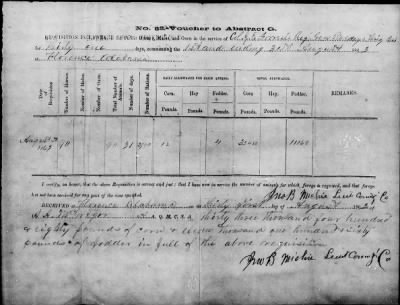 No. 82. Voucher to Abstract G.
REQUISITION FOR FORAGE
in the service of
days, commencing the 1st and ending 31st August 186 2
at Florence Alabama
Day of Requisition
Number of Horses.
Number of Mules.
Number of Oxen.
Total Number of Animals.
Number of Days.
Number of Rations.
DAILY ALLOWANCE FOR EACH ANIMAL.
Corn.
Hay.
Fodder.
Pounds.
Pounds.
Pounds.
TOTAL ALLOWANCE.
Corn
Hay.
Fodder.
Pounds.
Pounds.
Pounds.
REMARKS.
August 31
1862
90
31
12
4
33480
11160
I certify, on honor, that the above Requisition is correct and just; that I have now in service the number of animals for which forage is required, and that forage
has not been received for any part of the time specified.
Jno B Mickie Lieut Comdg Co
RECEIVED at Florence Alabama thirty first day of August 186 2
of A. McGregor A. Q. M. C. S. A. thirty three thousand four hundred
& eighty pounds of corn & eleven thousand one hundred & sixty
pounds of fodder in full of the above requisition
Jno B Mickie Lieut Comdg Co